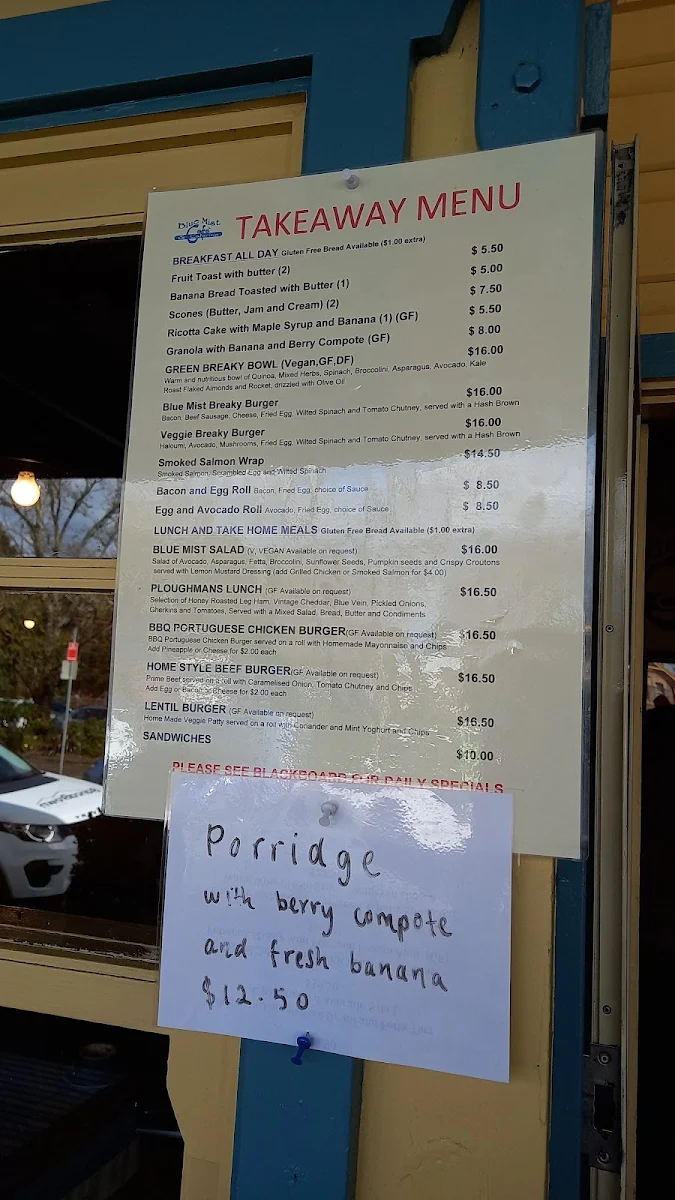 Blue Mist
TAKEAWAY MENU
BREAKFAST ALL DAY Gluten Free Bread Available ($1.00 extra)
Fruit Toast with butter (2) $ 5.50
Banana Bread Toasted with Butter (1) $ 5.00
Scones (Butter, Jam and Cream) (2) $ 7.50
Ricotta Cake with Maple Syrup and Banana (1) (GF) $ 5.50
Granola with Banana and Berry Compote (GF) $ 8.00
GREEN BREAKY BOWL (Vegan,GF,DF) $16.00
Warm and nutritious bowl of Quinoa, Mixed Herbs, Spinach, Broccolini, Asparagus, Avocado, Kale
Roast Flaked Almonds and Rocket, drizzled with Olive Oil
Blue Mist Breaky Burger $16.00
Bacon, Beef Sausage, Cheese, Fried Egg, Wilted Spinach and Tomato Chutney, served with a Hash Brown
Veggie Breaky Burger $16.00
Haloumi, Avocado, Mushrooms, Fried Egg, Wilted Spinach and Tomato Chutney, served with a Hash Brown
Smoked Salmon Wrap $14.50
Smoked Salmon, Scrambled Egg and Wilted Spinach
Bacon and Egg Roll Bacon, Fried Egg, choice of Sauce $ 8.50
Egg and Avocado Roll Avocado, Fried Egg, choice of Sauce $ 8.50
LUNCH AND TAKE HOME MEALS Gluten Free Bread Available ($1.00 extra)
BLUE MIST SALAD (V, VEGAN Available on request) $16.00
Salad of Avocado, Asparagus, Fetta, Broccolini, Sunflower Seeds, Pumpkin seeds and Crispy Croutons
served with Lemon Mustard Dressing (add Grilled Chicken or Smoked Salmon for $4.00)
PLOUGHMANS LUNCH (GF Available on request) $16.50
Selection of Honey Roasted Leg Ham, Vintage Cheddar, Blue Vein, Pickled Onions,
Gherkins and Tomatoes, Served with a Mixed Salad, Bread, Butter and Condiments
BBQ PORTUGUESE CHICKEN BURGER(GF Available on request) $16.50
BBQ Portuguese Chicken Burger served on a roll with Homemade Mayonnaise and Chips
Add Pineapple or Cheese for $2.00 each
HOME STYLE BEEF BURGER(GF Available on request) $16.50
Prime Beef served on a roll with Caramelised Onion, Tomato Chutney and Chips
Add Egg or Bacon or Cheese for $2.00 each
LENTIL BURGER (GF Available on request) $16.50
Home Made Veggie Patty served on a roll with Coriander and Mint Yoghurt and Chips
SANDWICHES $10.00
PLEASE SEE BLACKBOARD FOR DAILY SPECIALS
Porridge
with berry compote
and fresh banana
$12.50